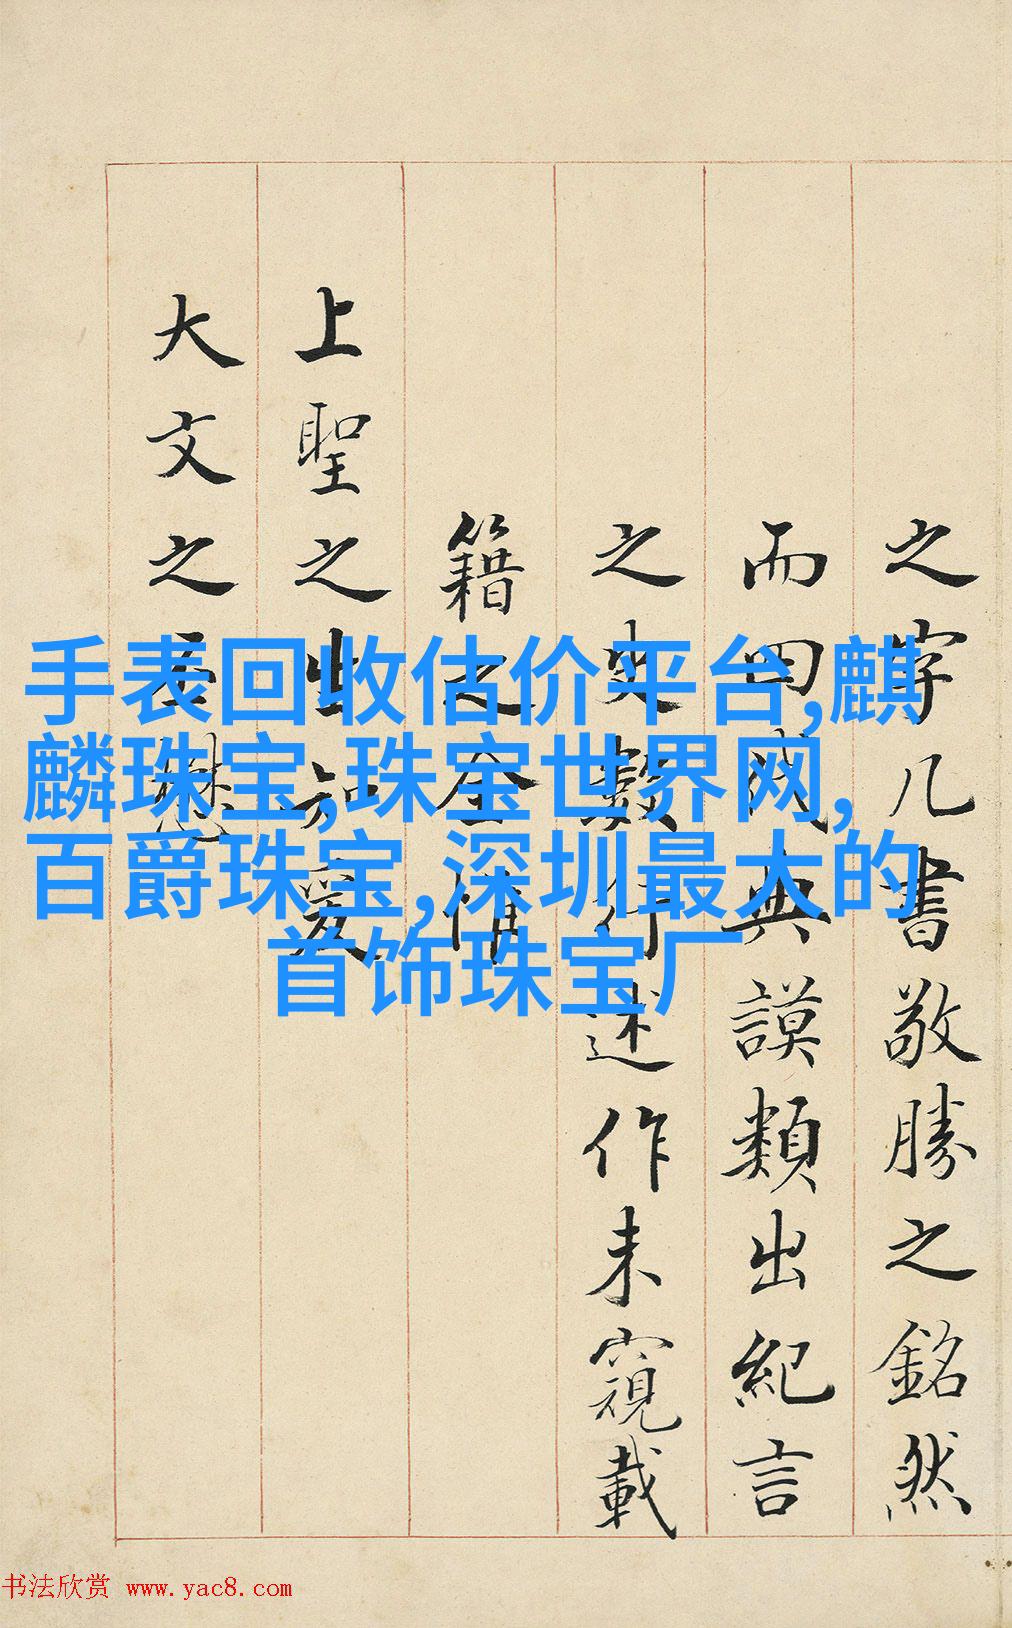 之字几書敬勝之銘然
而四典謨類出紀言
之史數行述作未窺載
籍之全惟
上聖之生知
大文之
手表回收估价平台,麒
麟珠宝,珠宝世界网,
百爵珠宝,深圳最大的
首饰珠宝厂
书法欣赏 www.yac8.com